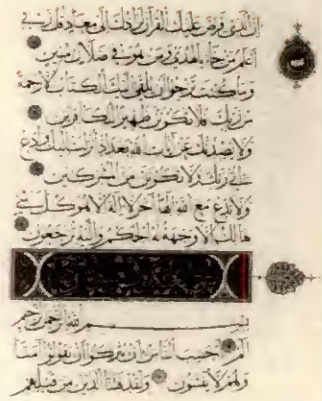 ان الذى فرض عليك القرآن لرادك الى معاد قل ربى
اعلم من جاء بالهدى ومن هو فى ضلال مبين
وما كنت ترجوا ان يلقى اليك الكتاب الا رحمة
من ربك فلا تكونن ظهيرا للكافرين
ولا يصدنك عن آيات الله بعد اذ انزلت اليك وادع
الى ربك ولا تكونن من المشركين
ولا تدع مع الله الها آخر لا اله الا هو كل شىء
هالك الا وجهه له الحكم واليه ترجعون
بسم الله الرحمن الرحيم
الم احسب الناس ان يتركوا ان يقولوا آمنا
وهم لا يفتنون ولقد فتنا الذين من قبلهم